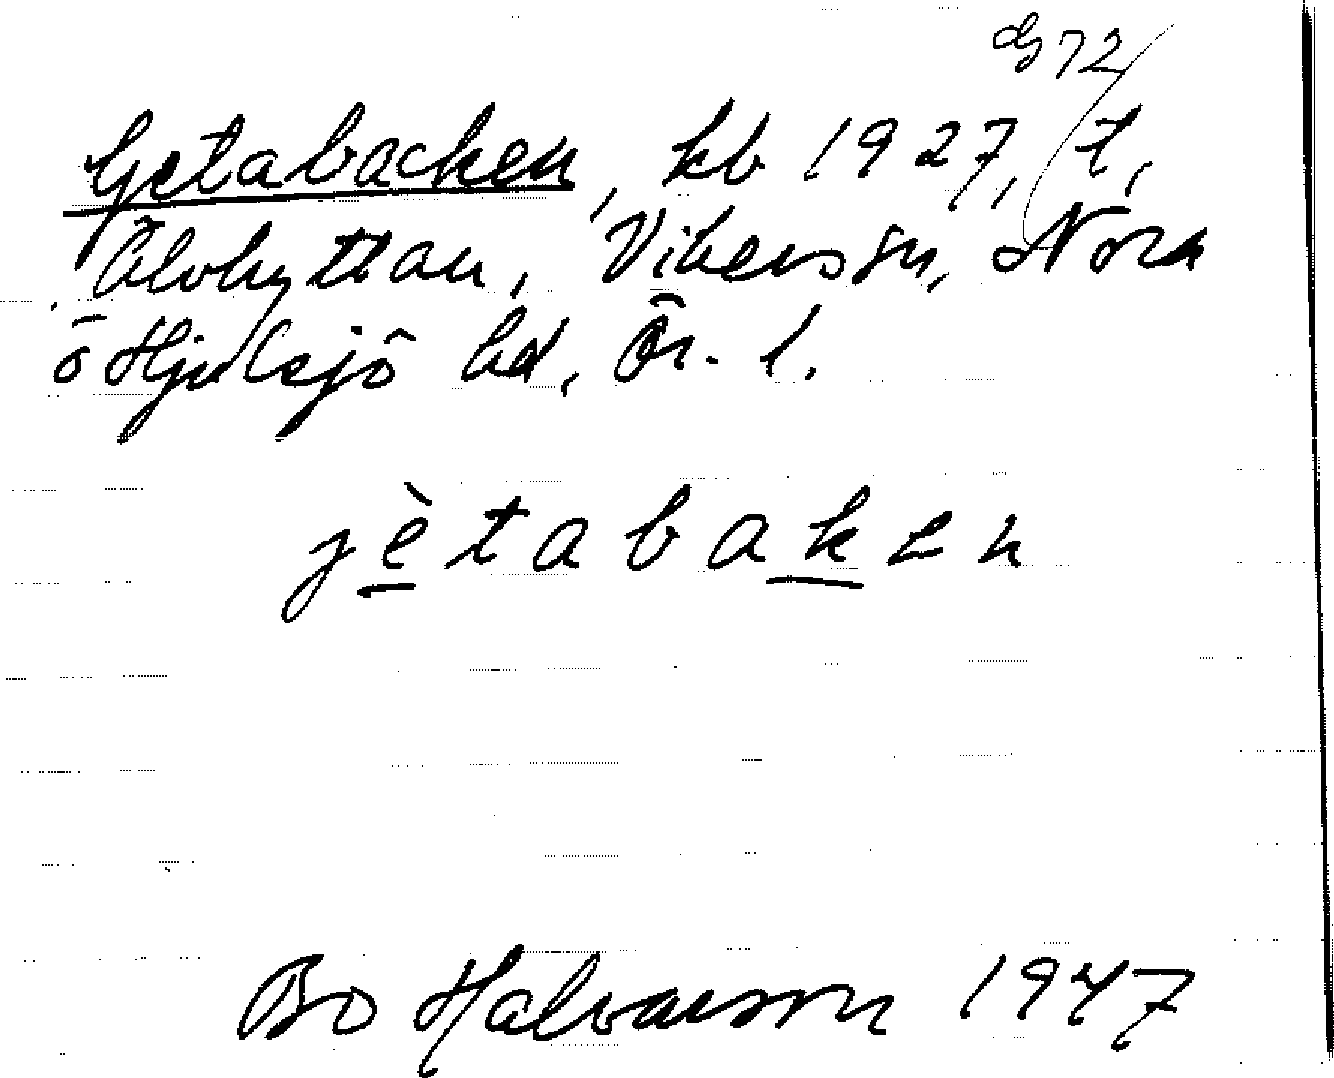 dg 72
Getabacken, kb 1927, t,
Älvhyttan, Vikers sn, Nora
o Hjulsjö hd, Ör. l.
jètabaken
Bo Halvarson 1947